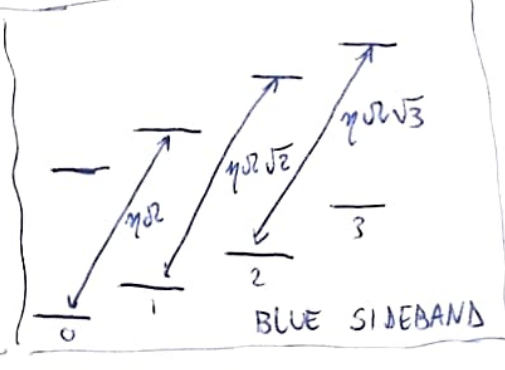 ηΩ√3
ηΩ√2
ηΩ
3
2
1
0
BLUE SIDEBAND